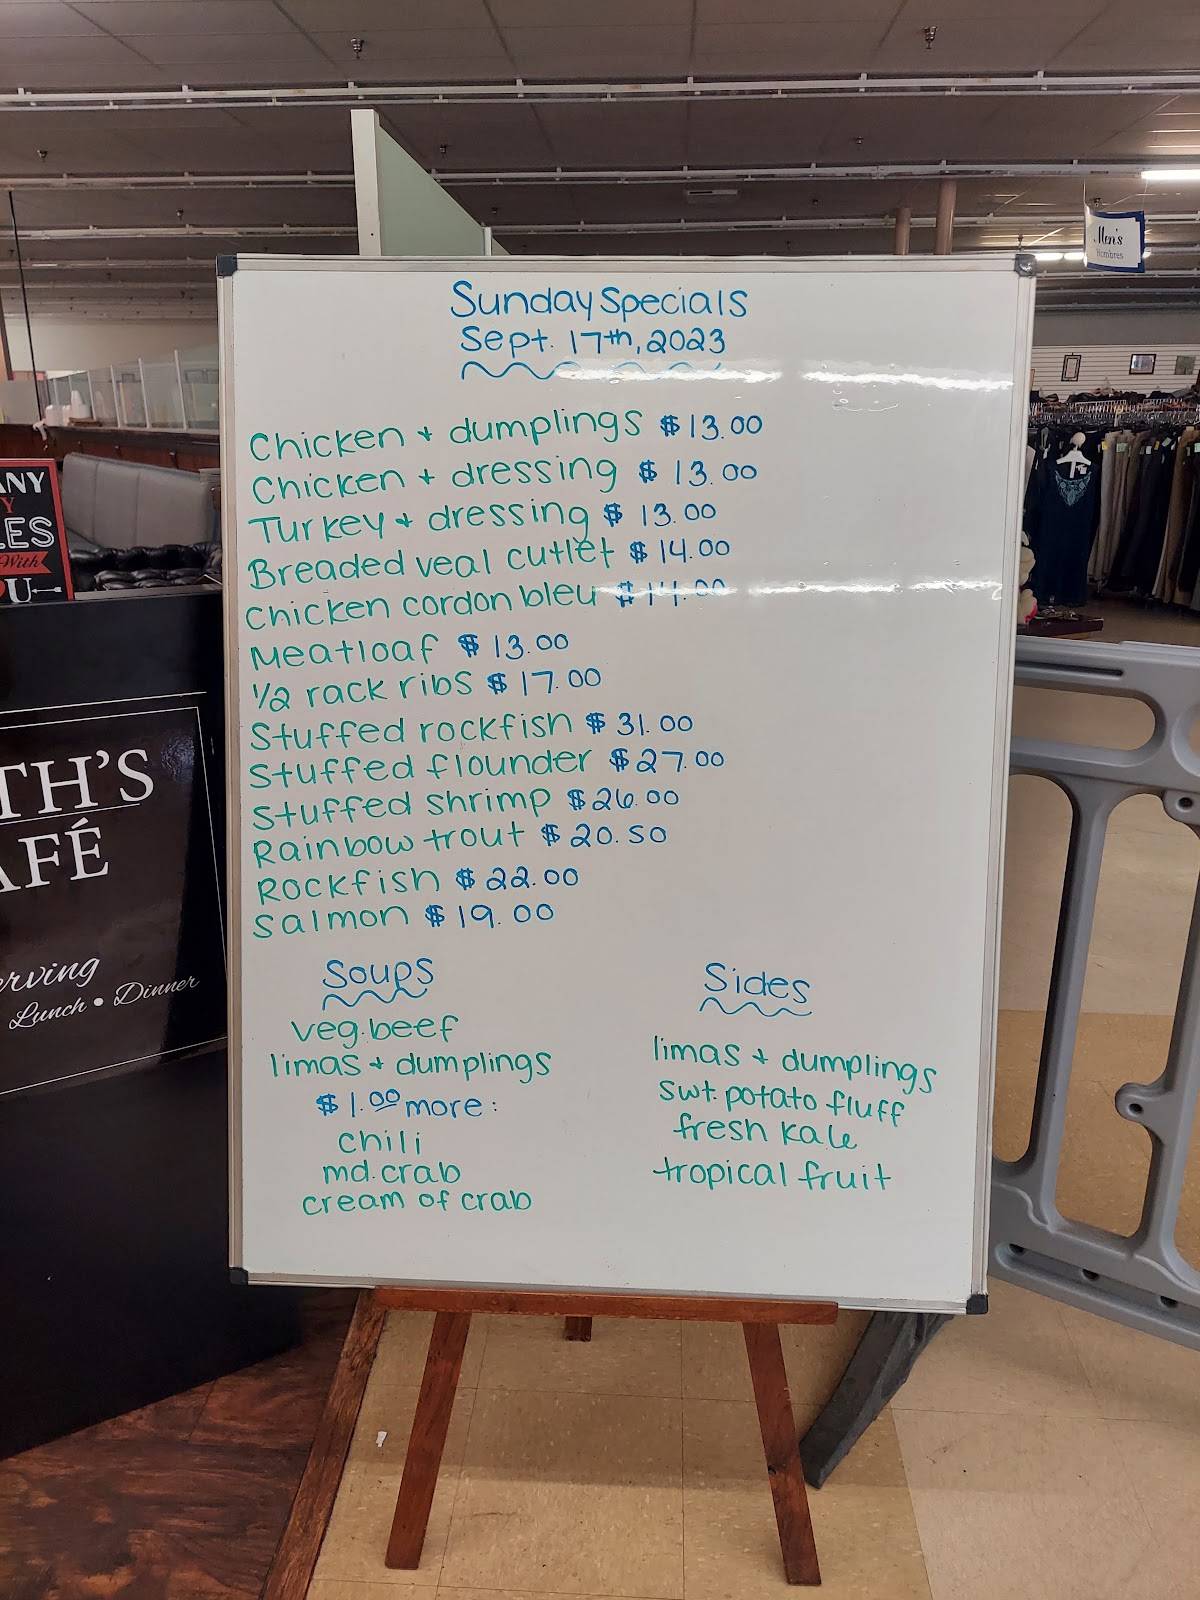 Sunday Specials
Sept. 17th, 2023
Chicken + dumplings $13.00
Chicken + dressing $13.00
Turkey + dressing $13.00
Breaded veal cutlet $14.00
Chicken cordon bleu $14.00
Meatloaf $13.00
1/2 rack ribs $17.00
Stuffed rockfish $31.00
Stuffed flounder $27.00
Stuffed shrimp $26.00
Rainbow trout $20.50
Rockfish $22.00
Salmon $19.00
Soups
veg. beef
limas + dumplings
$1.00 more:
chili
md. crab
cream of crab
Sides
limas + dumplings
swt. potato fluff
fresh kale
tropical fruit
Men's
Hombres
ANY
Y
LES
With
U
TH'S
AFÉ
erving
Lunch • Dinner